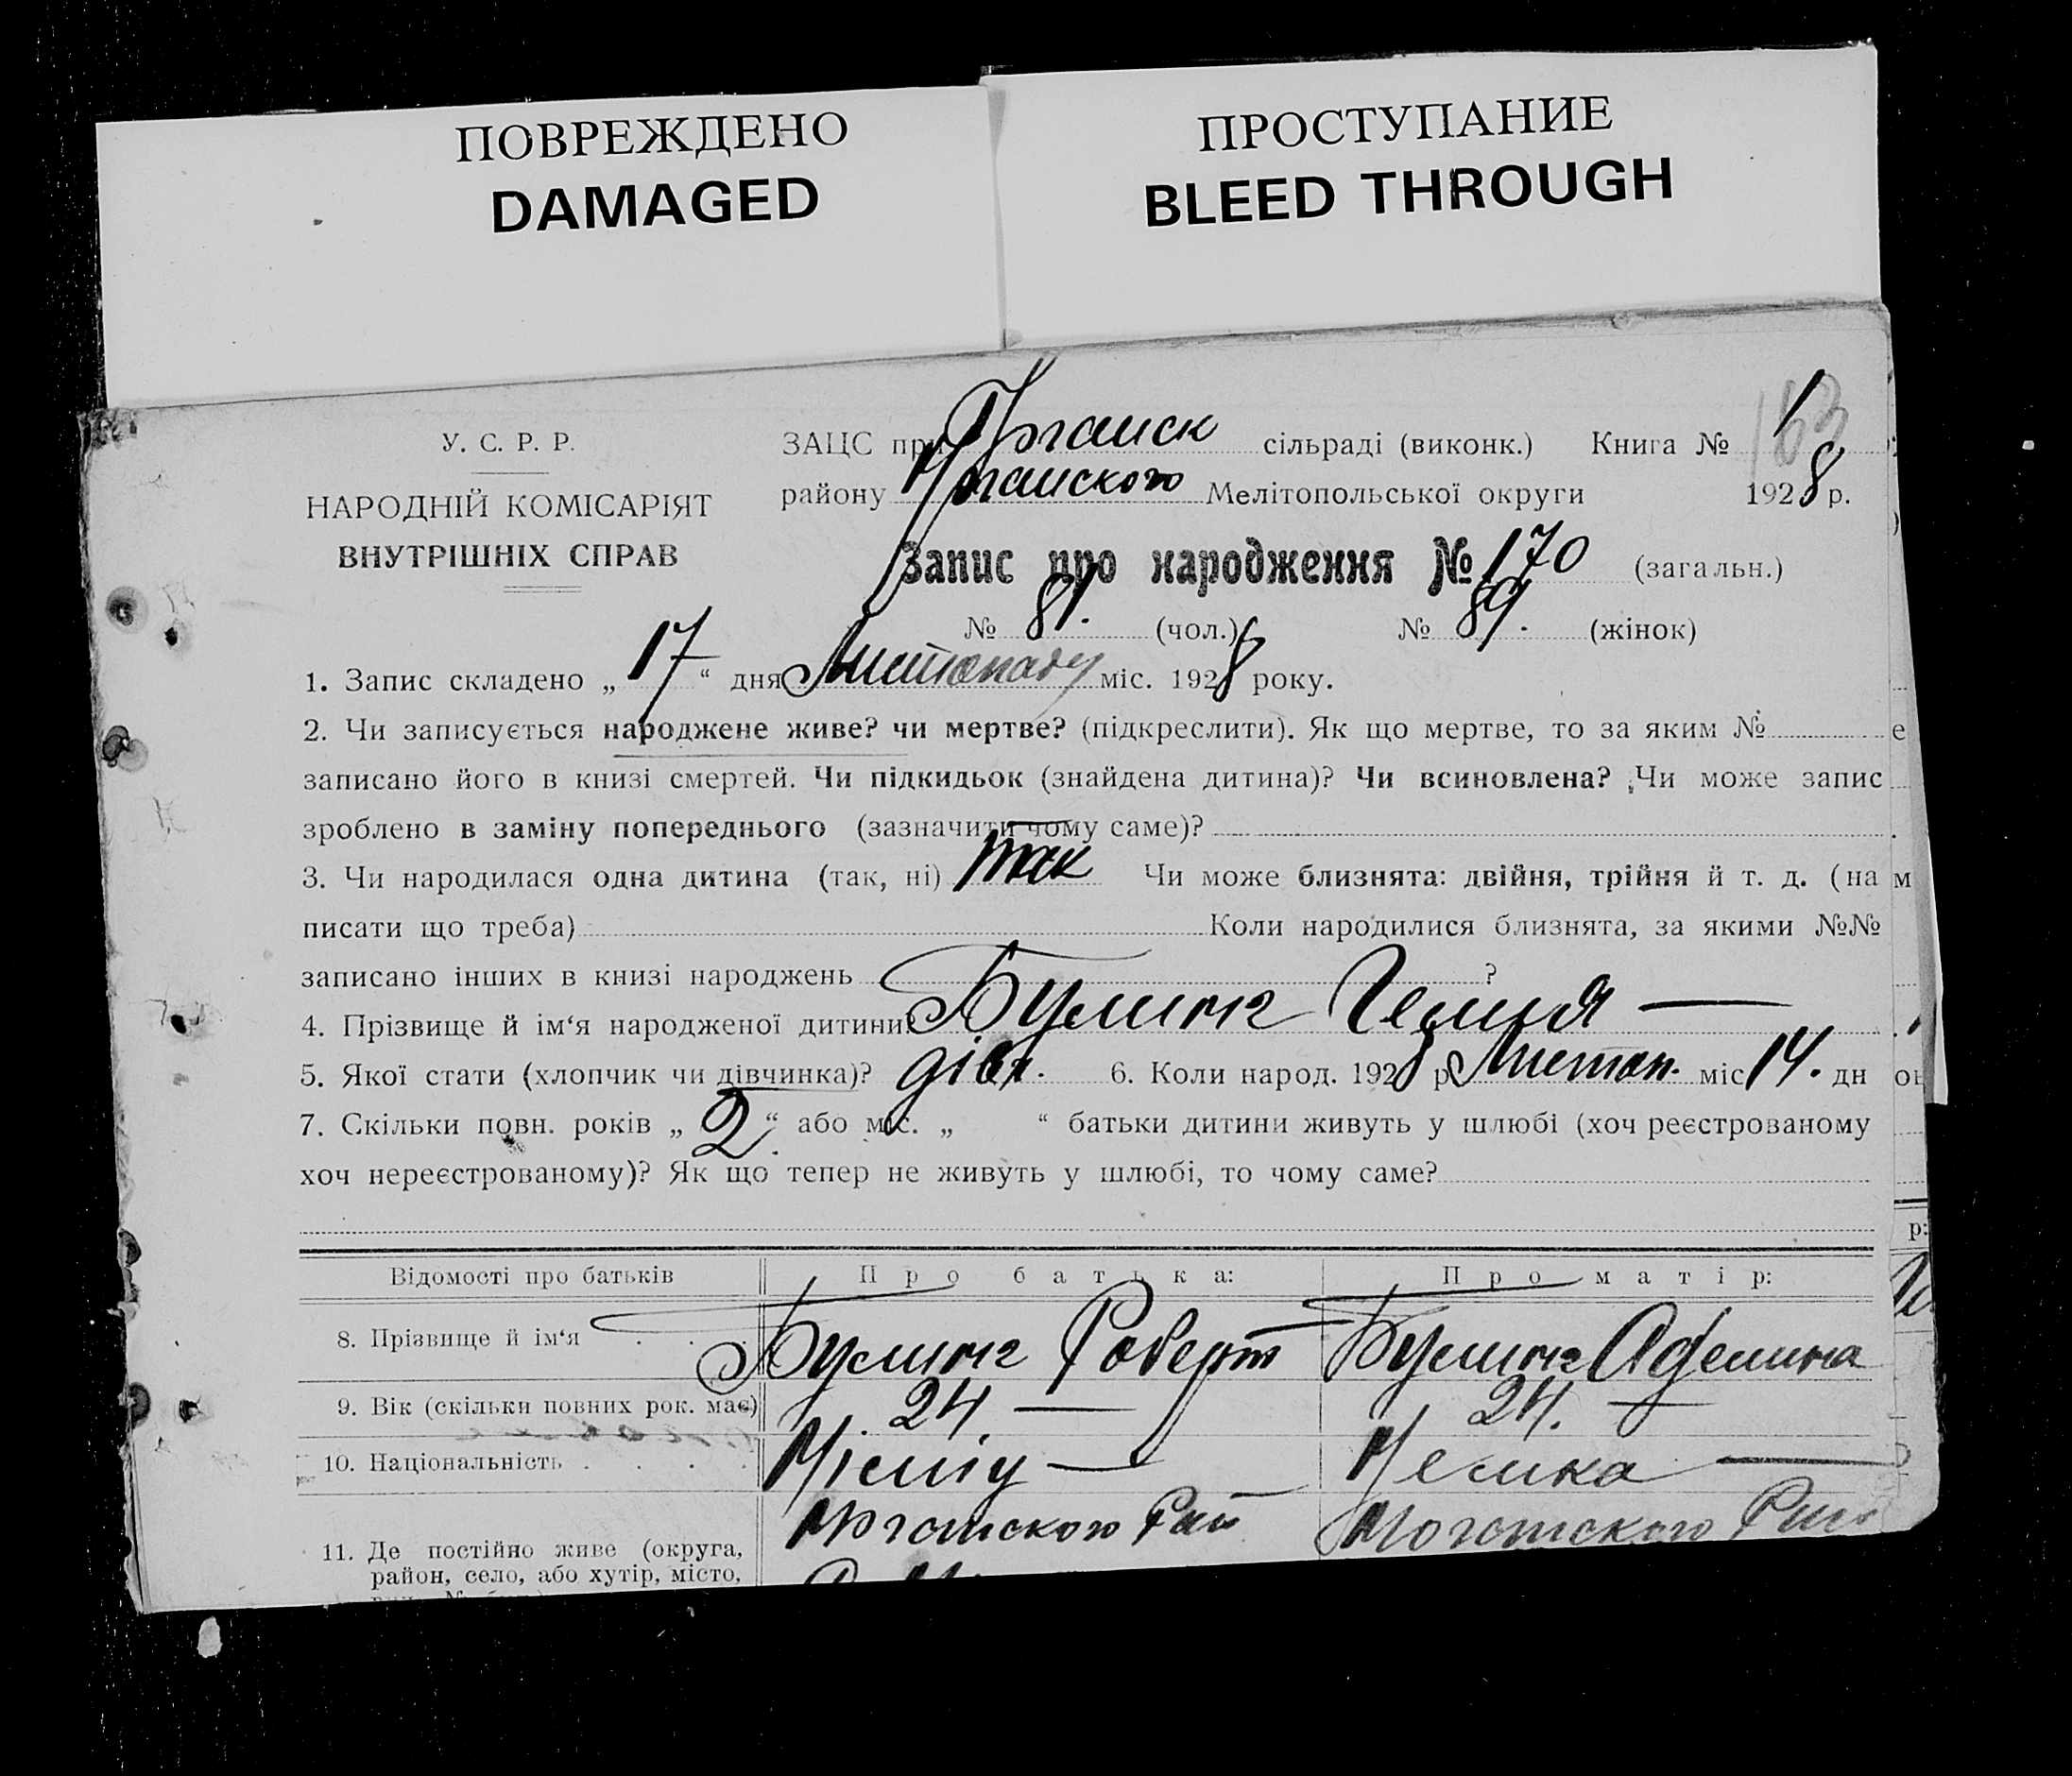 ПОВРЕЖДЕНО
DAMAGED
ПРОСТУПАНИЕ
BLEED THROUGH
У. С. Р. Р.
НАРОДНІЙ КОМІСАРІЯТ
ВНУТРІШНІХ СПРАВ
ЗАЦС при сільраді (виконк.) Книга № 163
району Мелітопольської округи 1928 р.
Запис про народження № 170 (загальн.)
№ 81. (чол.) № 89. (жінок)
1. Запис складено „ 17 “ дня Листопаду міс. 1928 року.
2. Чи записується народжене живе? чи мертве? (підкреслити). Як що мертве, то за яким №
записано його в книзі смертей. Чи підкидьок (знайдена дитина)? Чи всиновлена? Чи може запис
зроблено в заміну попереднього (зазначити чому саме)?
3. Чи народилася одна дитина (так, ні) так Чи може близнята: двійня, трійня й т. д. (на
писати що треба) Коли народилися близнята, за якими №№
записано інших в книзі народжень ?
4. Прізвище й ім‘я народженої дитини:
5. Якої стати (хлопчик чи дівчинка)? дівч. 6. Коли народ. 1928 р. Листоп. міс. 14. дн
7. Скільки повн. років „ 2 “ або міс. „ “ батьки дитини живуть у шлюбі (хоч реєстрованому
хоч нереєстрованому)? Як що тепер не живуть у шлюбі, то чому саме?
Відомості про батьків Про батька: Про матір:
8. Прізвище й ім‘я Роберт Аделина
9. Вік (скільки повних рок. має) 24 24.
10. Національність Німець Немка
11. Де постійно живе (округа,
район, село, або хутір, місто,